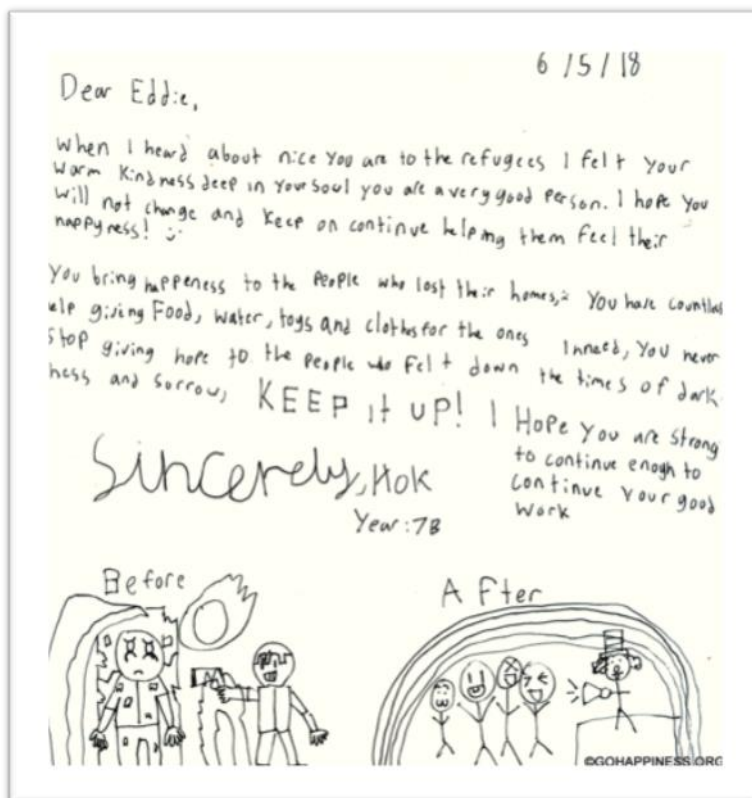 6/5/18
Dear Eddie,
When I heard about nice You are to the refugees I felt Your
warm Kindness deep in Your soul you are a very good Person. I hope You
will not change and keep on continue helping them feel their
happyness!
You bring happeness to the People who lost their homes, You have countles
elp giving Food, water, toys and clothes for the ones Inneed, You never
stop giving hope to the People who Felt down the times of dark
ness and Sorrow, KEEP it UP! I Hope You are Strong
to continue enogh to
continue Your good
work
Sincerely, HOK
Year: 7B
Before
AFter
©GOHAPPINESS.ORG